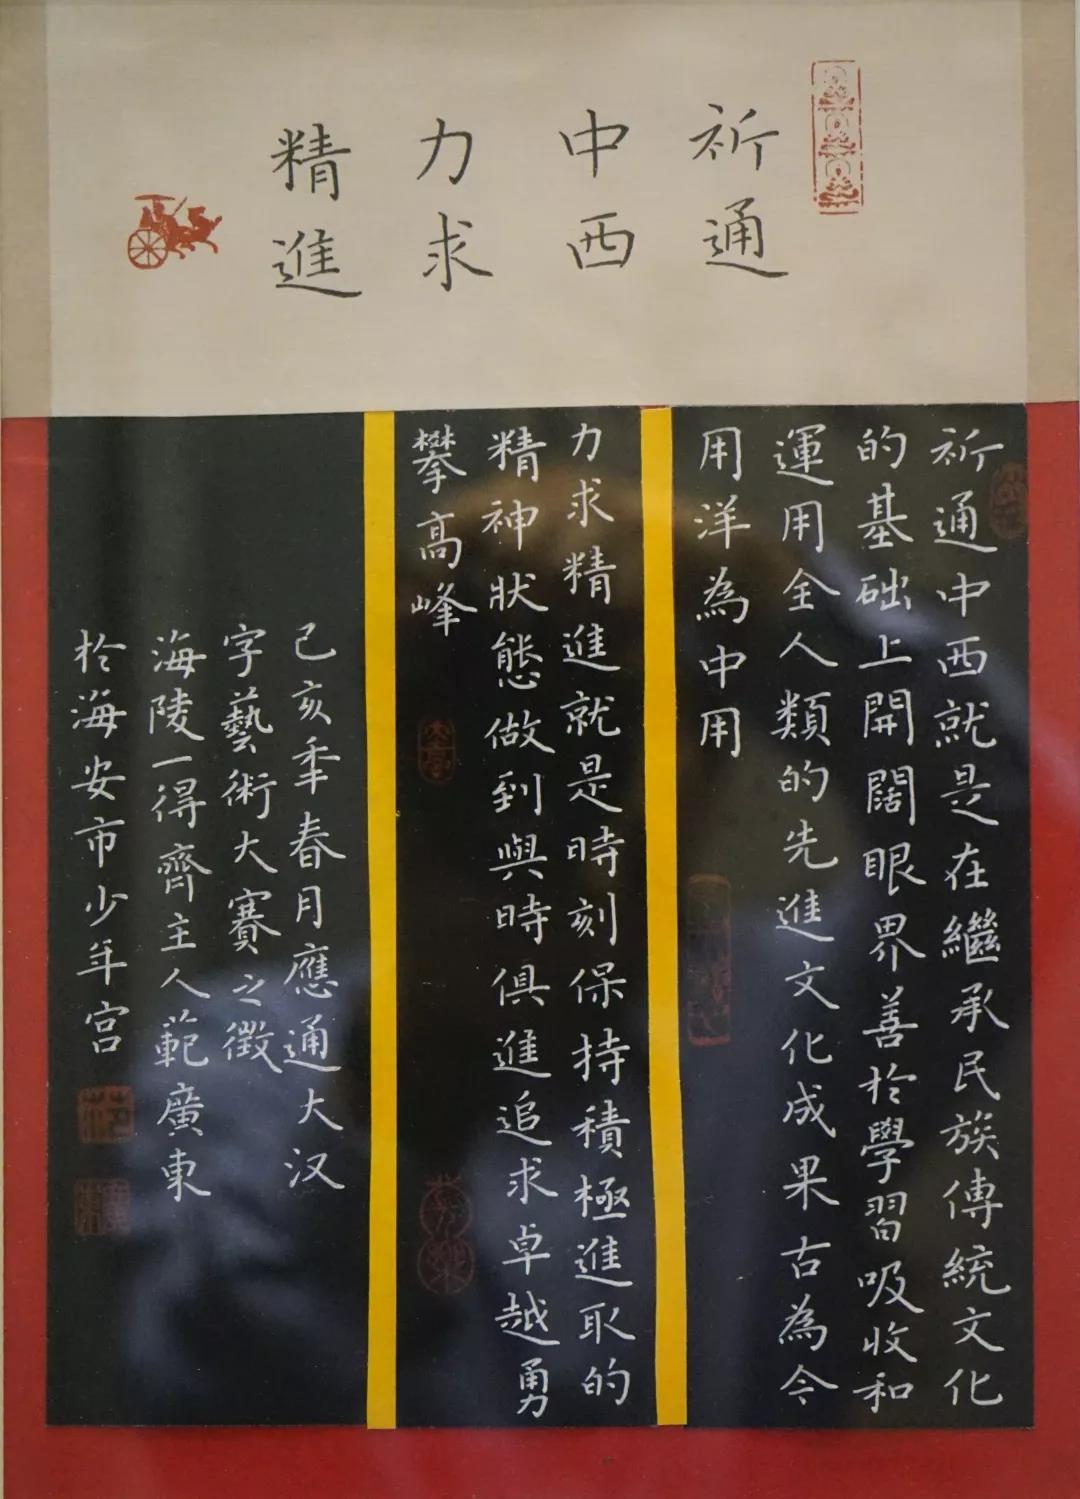 祈通
中西
力求
精進
祈通中西就是在繼承民族傳統文化
的基础上開闊眼界善於學習吸收和
運用全人類的先進文化成果古為今
用洋為中用
力求精進就是時刻保持積極進取的
精神狀態做到與時俱進追求卓越勇
攀高峰
己亥秊春月應通大汉
字藝術大賽之徵
海陵一得齊主人範廣東
於海安市少年宮